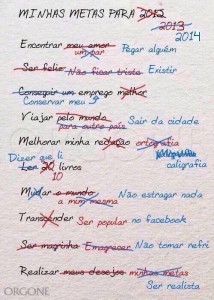 MINHAS METAS PARA 2012
2013
2014
Encontrar meu amor um par Pegar alguém
Ser feliz Não ficar triste Existir
Conseguir um emprego melhor
Conservar meu
Viajar pelo mundo Sair da cidade
para outro país
Melhorar minha redação ortografia
caligrafia
Dizer que li
Ler 20 livros
10
Mudar o mundo Não estragar nada
a mim mesma
Transcender Ser popular no facebook
Ser magrinha Emagrecer Não tomar refri
Realizar meus desejos minhas metas
Ser realista
ORGONE